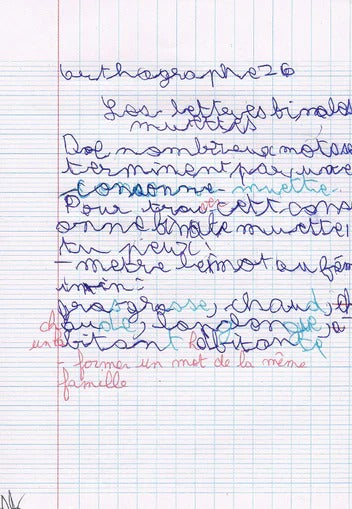 orthographe 26
Les lettres finales
muettes
De nombreux mots se
terminent par une
consonne muette.
Pour trouver cett cons
onne finale muette,
tu peux :
- metre le mot au fém
inin :
gros grosse, chaud, ch
aude, long longue, a
bitant habitante
- former un mot de la même
famille